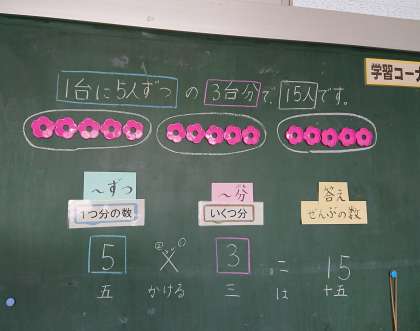 学習コーナ
1台に5人ずつ の 3台分で、15人です。
～ずつ ～分 答え
1つ分の数 いくつ分 ぜんぶの数
5 × 3 = 15
五 かける 三 は 十五